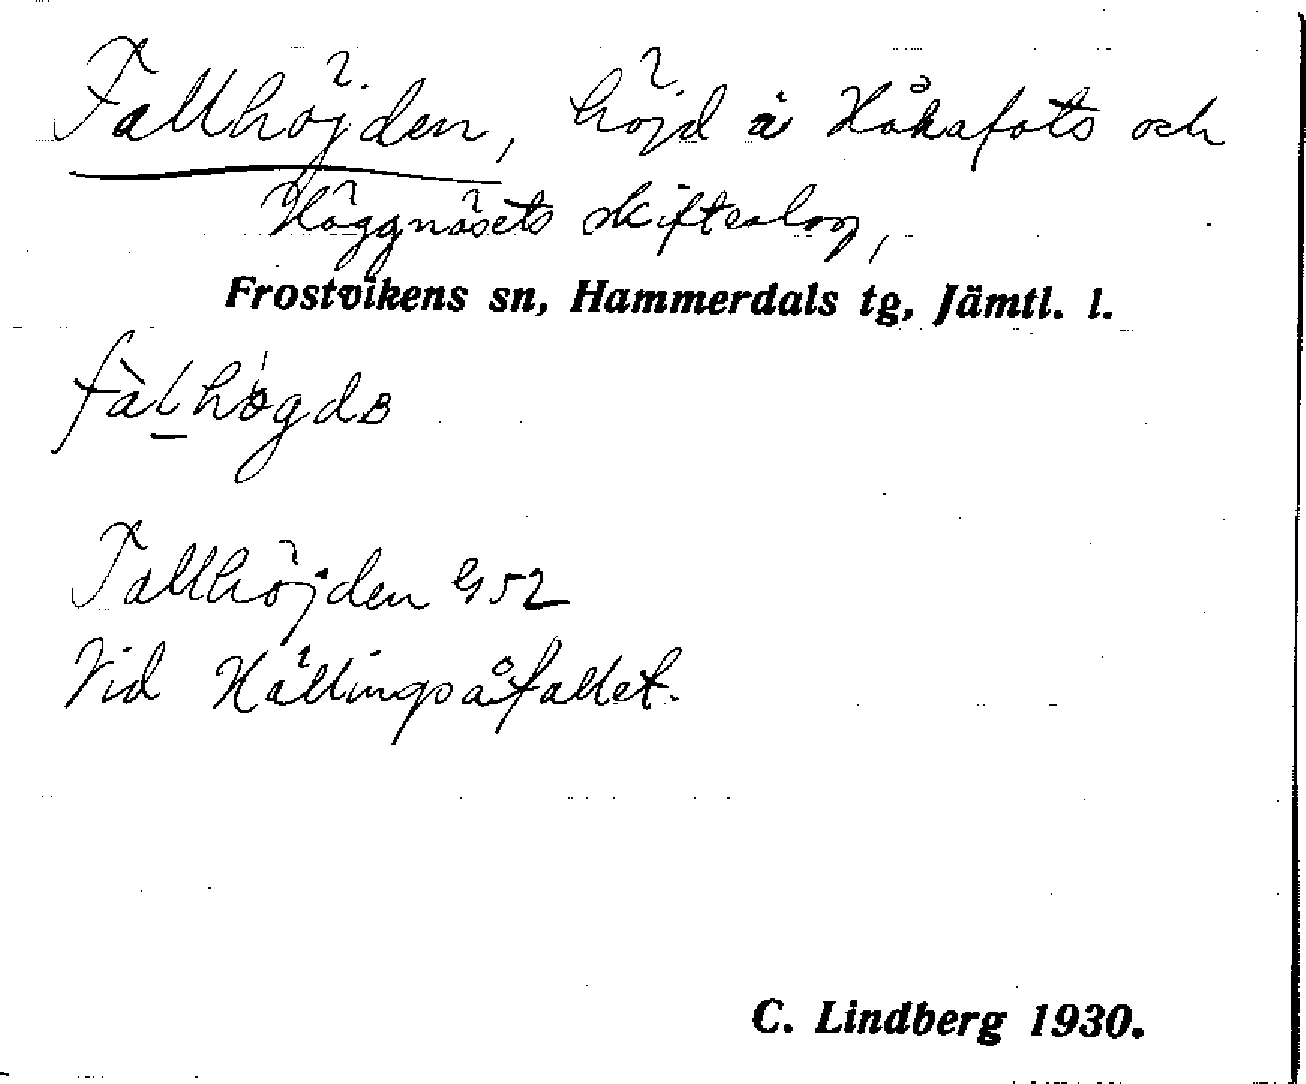 Fallhöjden, höjd å Håkafots och
Häggnäsets skifteslag,
Frostvikens sn, Hammerdals tg, Jämtl. l.
Fallhöjden G52
Vid Hällingsåfallet.
C. Lindberg 1930.